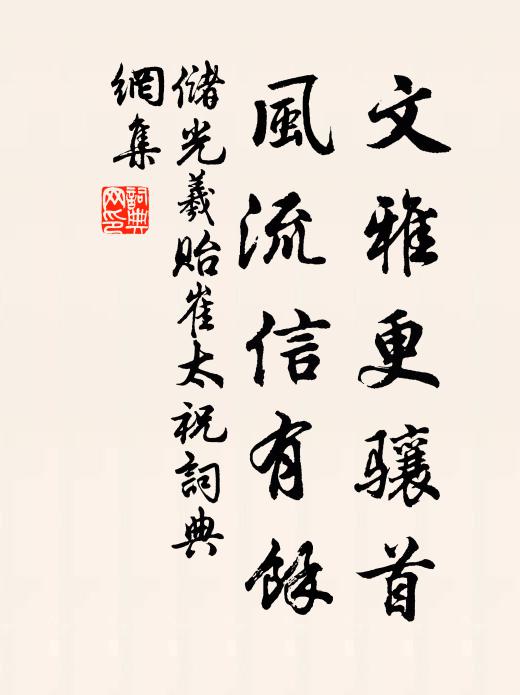 文雅更骧首
風流信有餘
儲光羲貽崔太祝詞典
網集
詞典网印